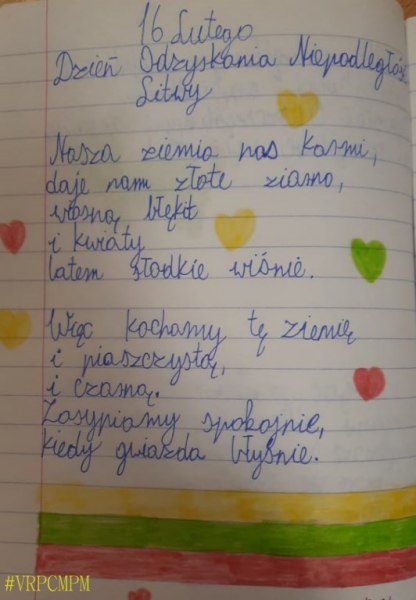 16 Lutego
Dzień Odzyskania Niepodległośc
Litwy
Nasza ziemia nas karmi,
daje nam złote ziarno,
wiosną błękit
i kwiaty
latem słodkie wiśnie.
Więc kochamy tę ziemię
i piaszczystą,
i czarną.
Zasypiamy spokojnie,
kiedy gwiazda błyśnie.
#VRPCMPM